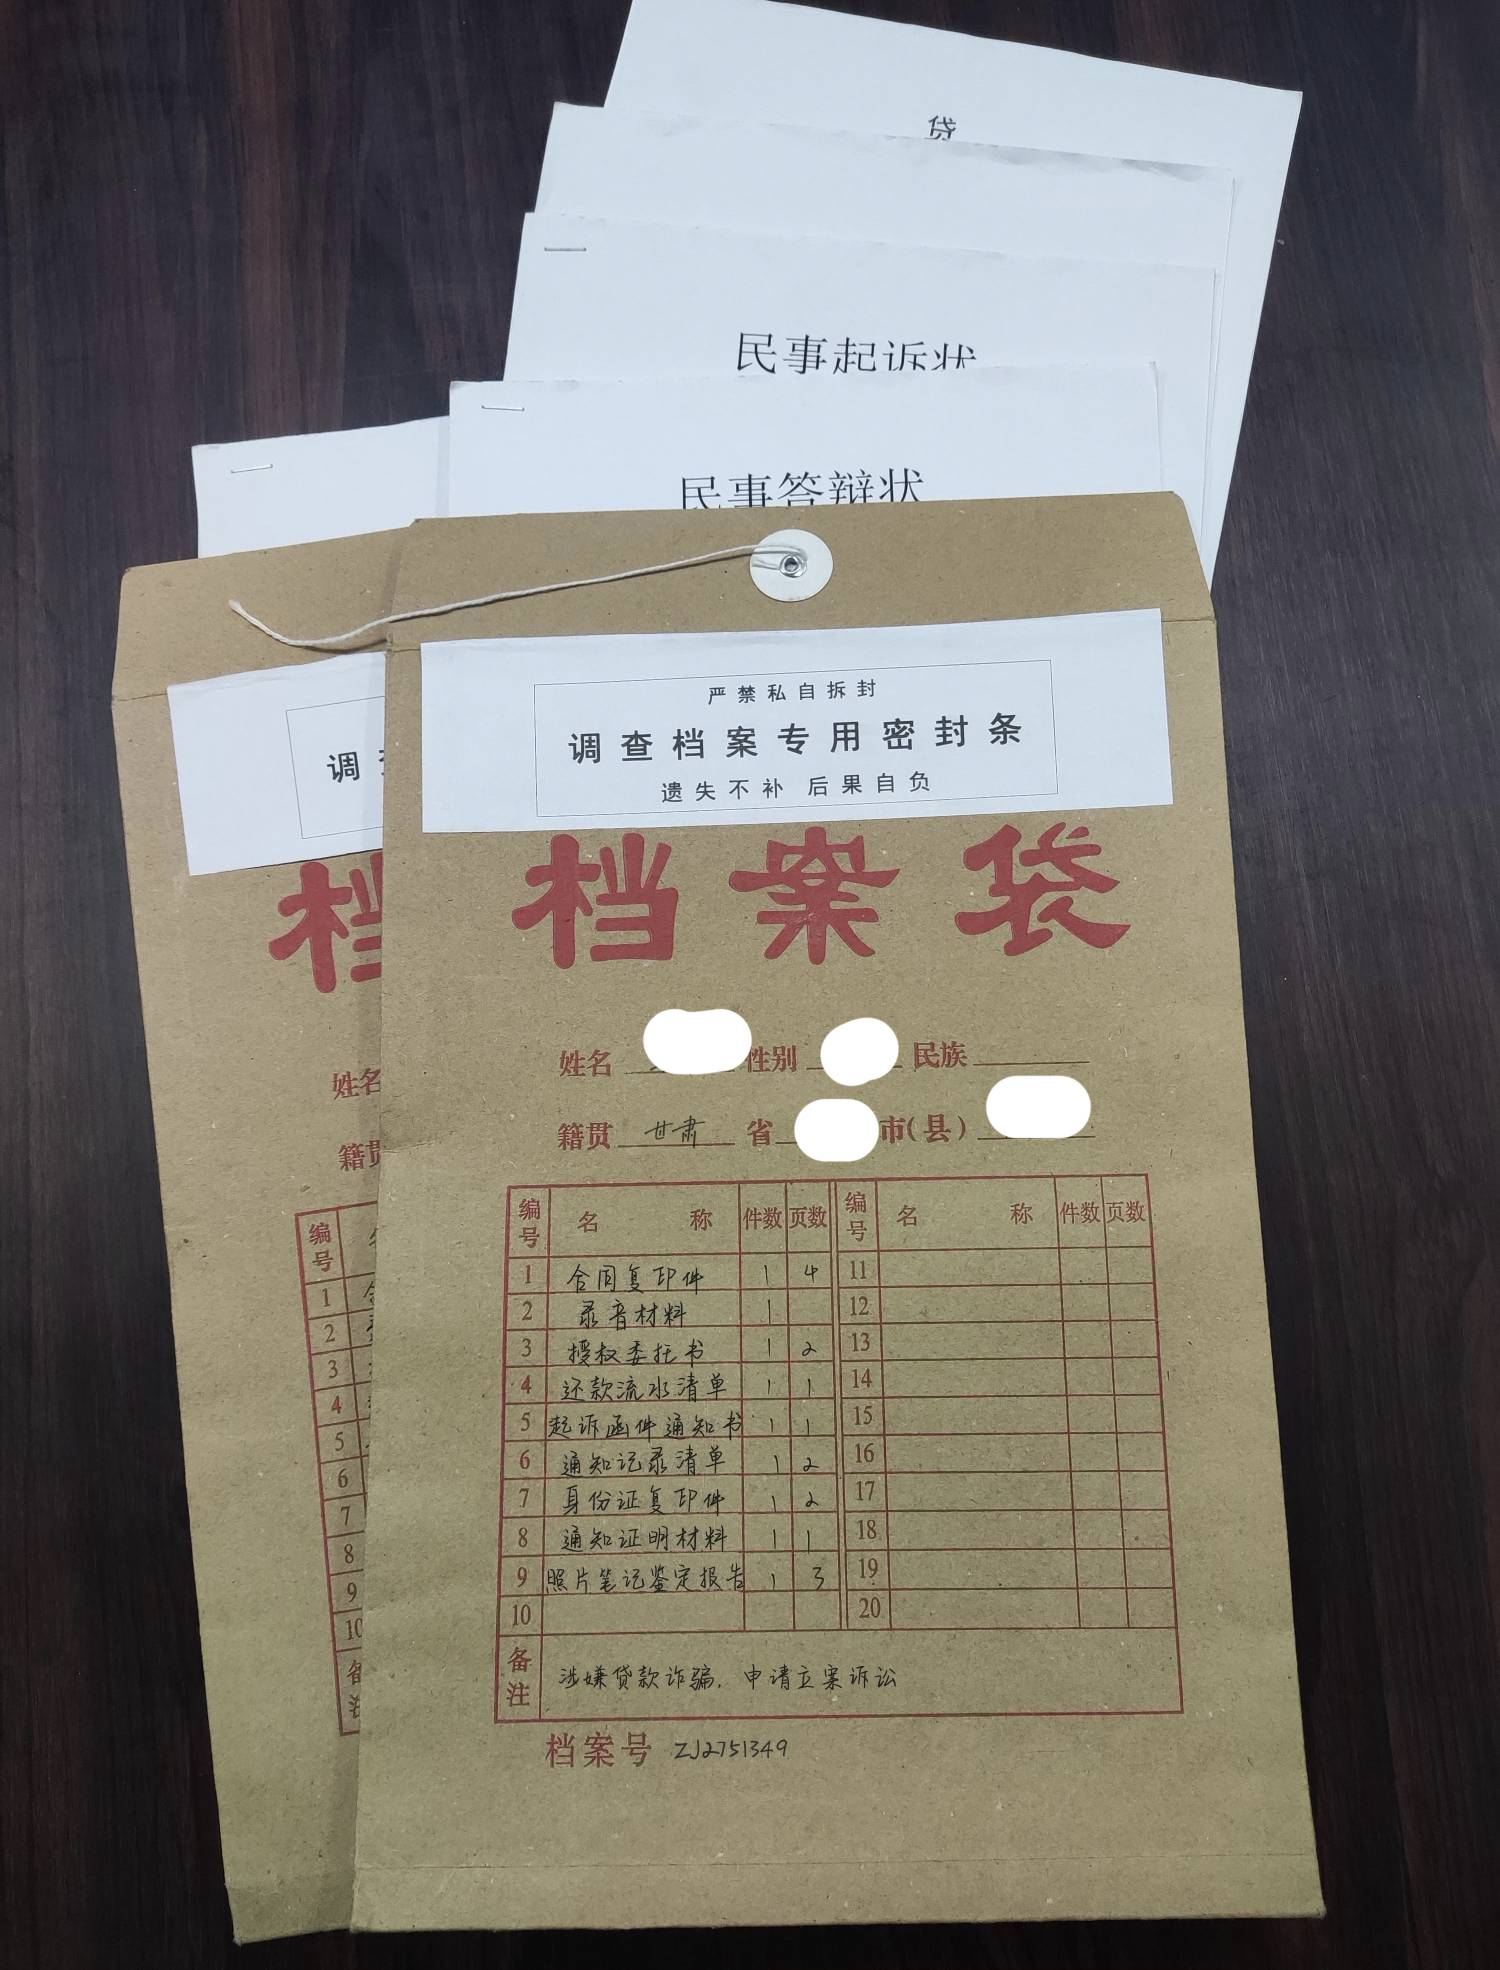 贷
民事起诉状
民事答辩状
严禁私自拆封
调查档案专用密封条
遗失不补 后果自负
调
档案袋
档
姓名 性别 民族
籍贯 甘肃 省 市(县)
姓名
籍贯
编号 名称 件数 页数 编号 名称 件数 页数
1 合同复印件 1 4 11
2 录音材料 1 12
3 授权委托书 1 2 13
4 还款流水清单 1 1 14
5 起诉函件通知书 1 1 15
6 通知记录清单 1 2 16
7 身份证复印件 1 2 17
8 通知证明材料 1 1 18
9 照片笔记鉴定报告 1 3 19
10 20
备注 涉嫌贷款诈骗，申请立案诉讼
档案号 ZJ2751349
编号
1
2
3
4
5
6
7
8
9
10
备注